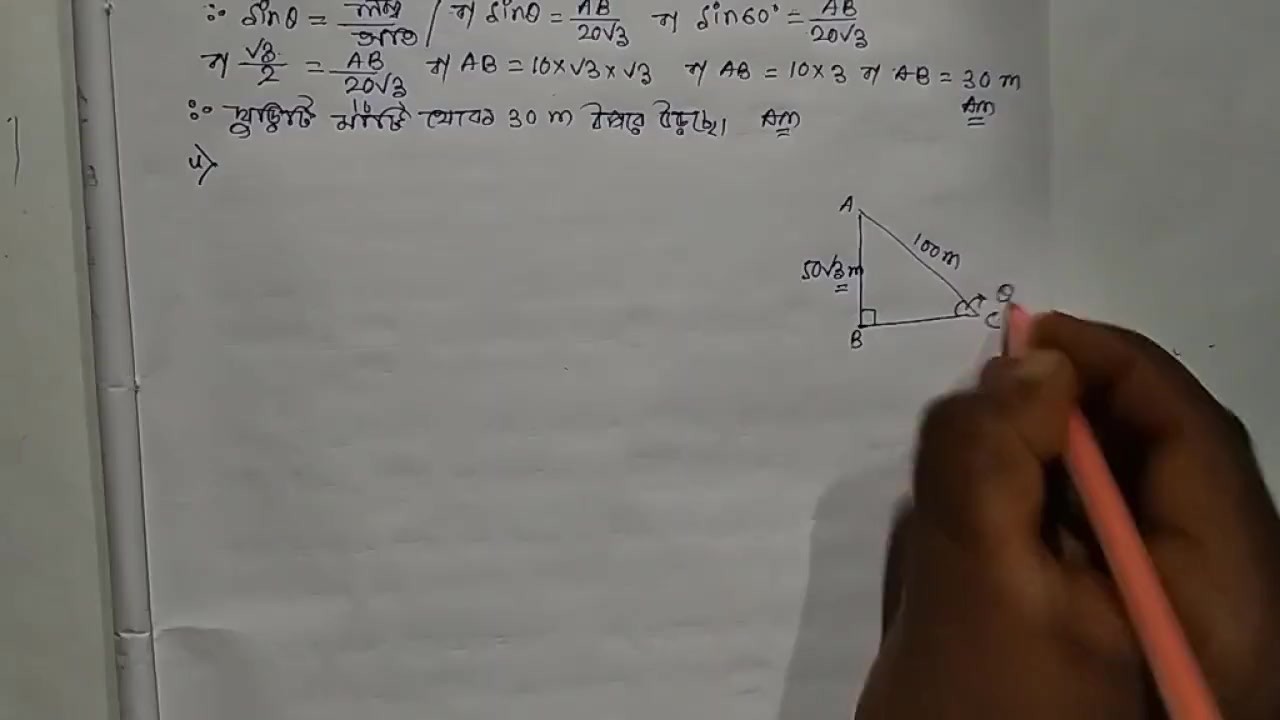 ∴ sinθ = লম্ব/অতি / বা sinθ = AB/20√3 বা sin60° = AB/20√3
বা √3/2 = AB/20√3 বা AB = 10×√3×√3 বা AB = 10×3 বা AB = 30 m
Am
∴ ঘুড়িটি মাটি থেকে 30 m উপরে উড়ছে। Am
A
100m
50√3 m
θ
C
B